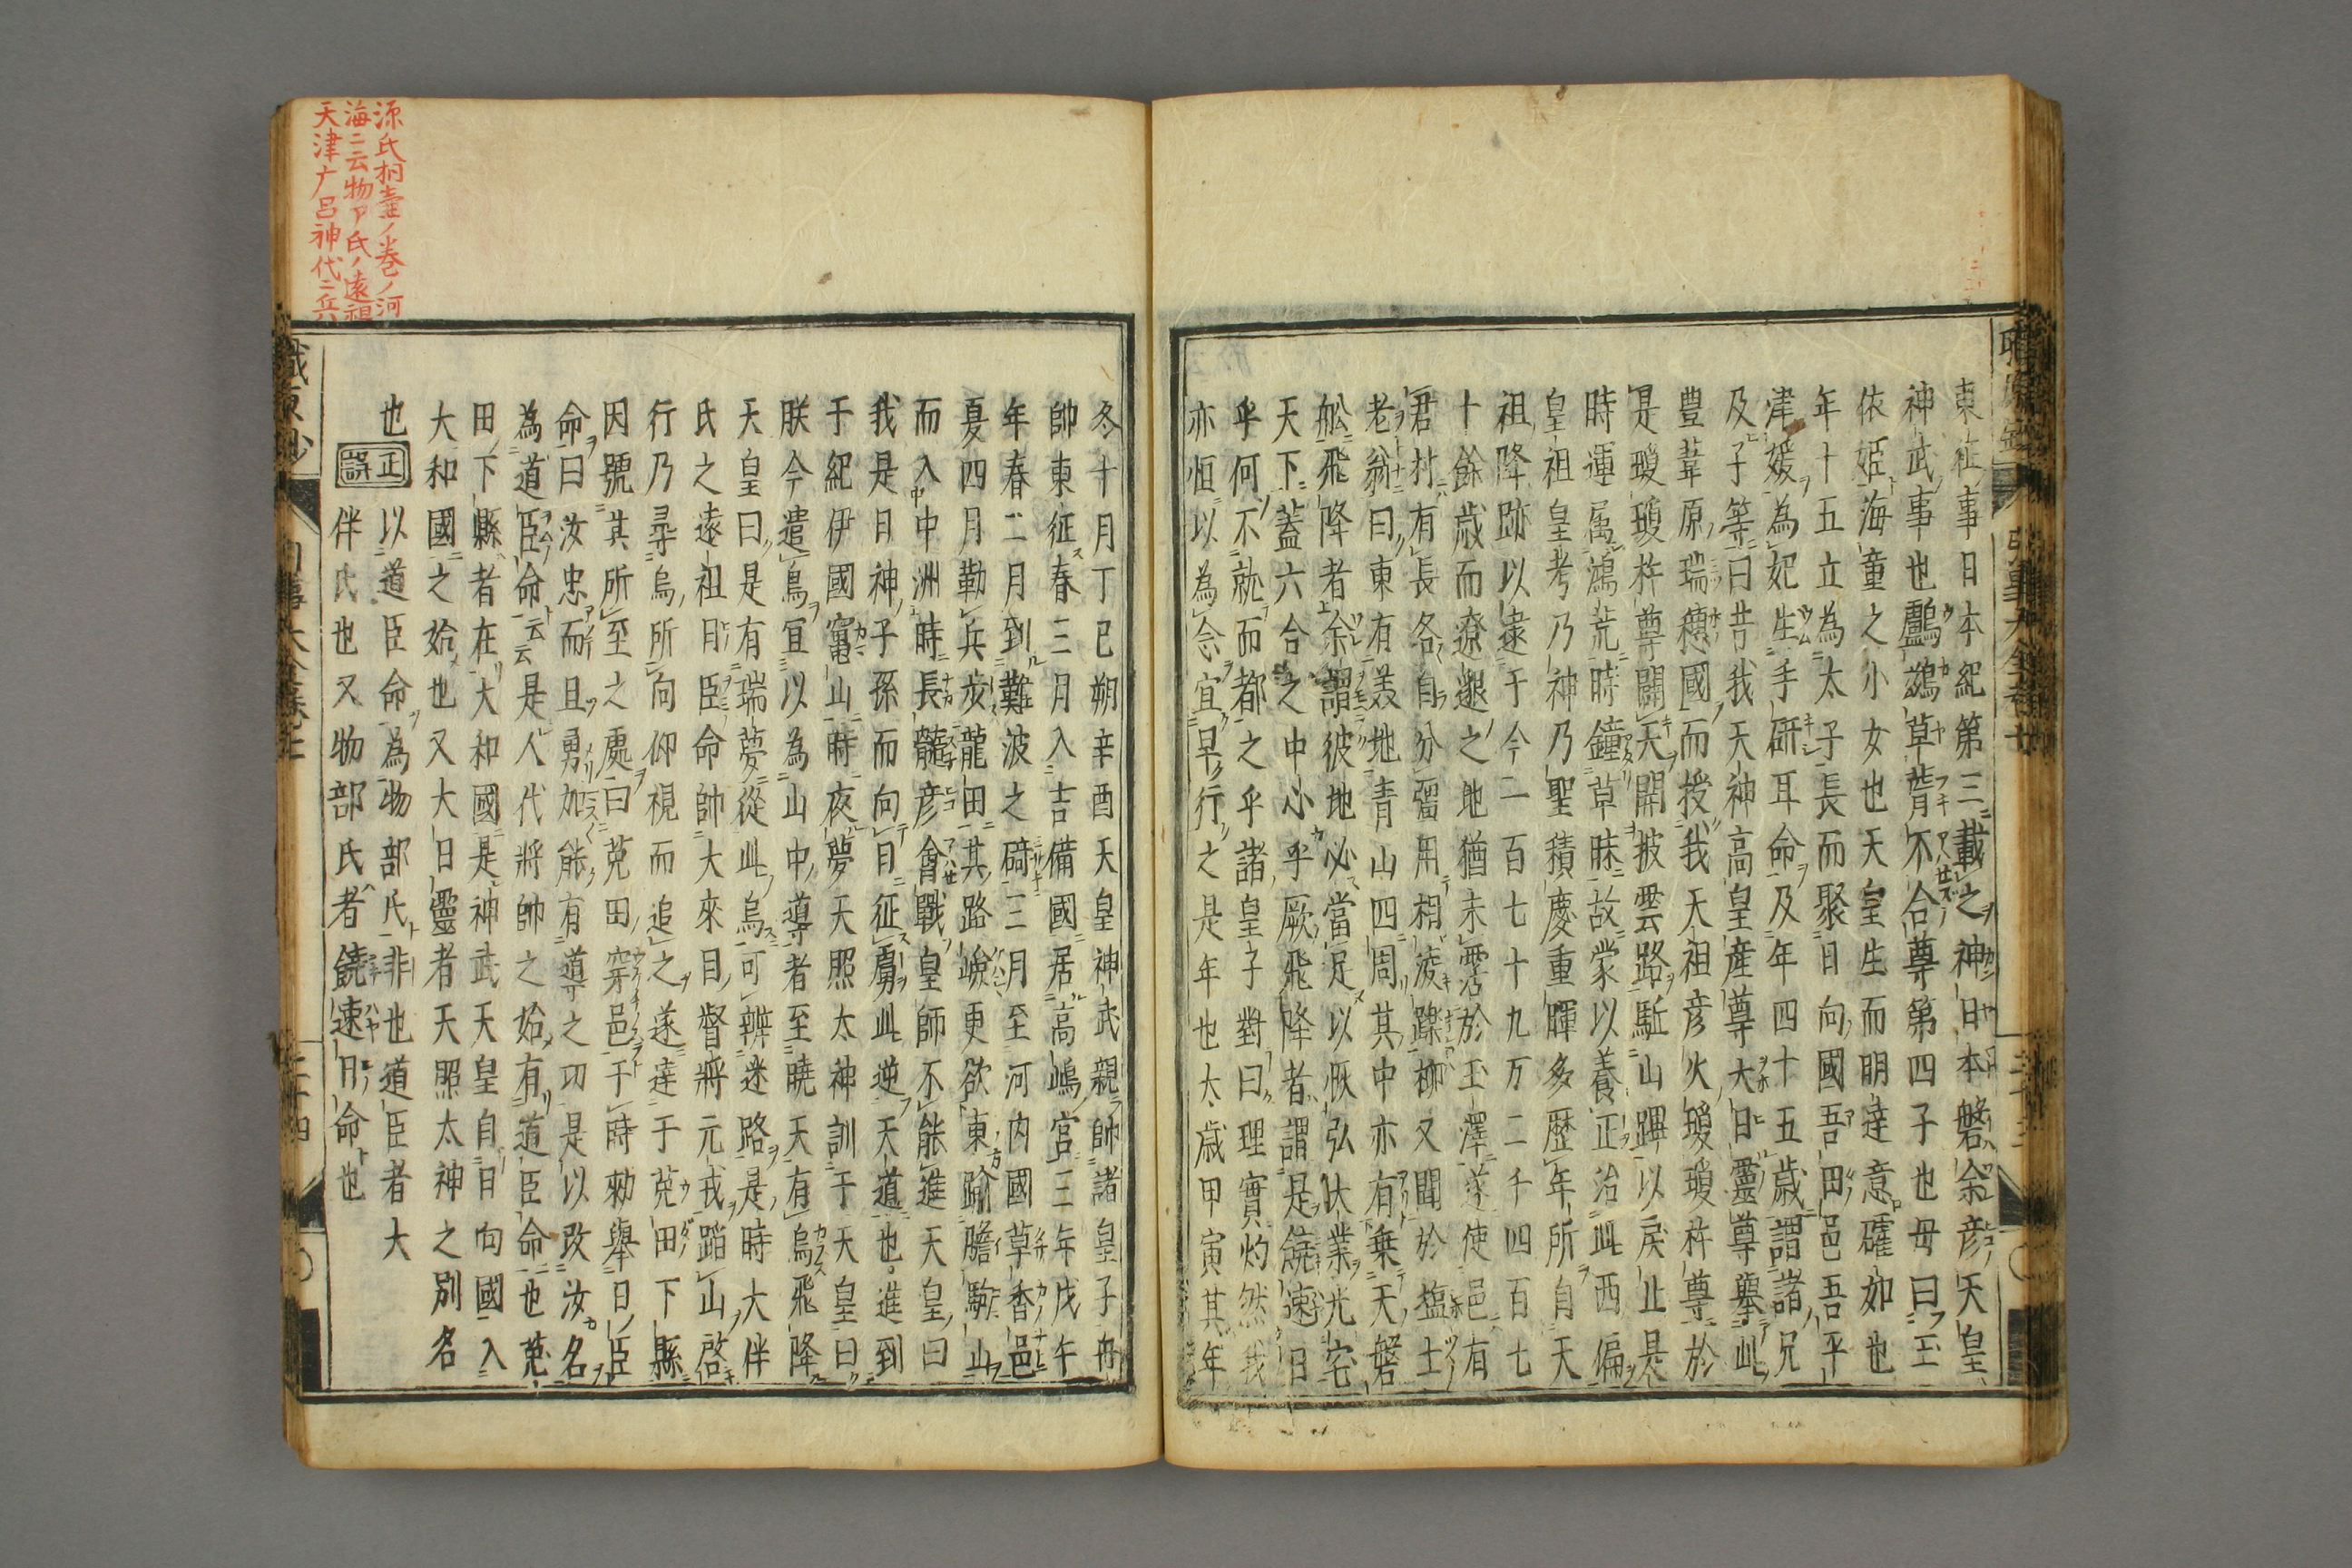 東征事日本紀第三載之神日本磐余彦天皇
神武事也鸕鷀草葺不合尊第四子也母曰玉
依姫海童之小女也天皇生而明達意礭如也
年十五立為太子長而聚日向國吾田邑吾平
津媛為妃生手研耳命及年四十五歳謂諸兄
及子等曰昔我天神高皇産尊大日孁尊擧此
豊葦原瑞穗國而授我天祖彦火瓊瓊杵尊於
是瓊瓊杵尊闢天開披雲路駈山蹕以戻止是
時運属鴻荒時鐘草昧故蒙以養正治此西偏
皇祖皇考乃神乃聖積慶重暉多歴年所自天
祖降跡以逮于今一百七十九万二千四百七
十餘歳而遼邈之地猶未霑於王澤遂使邑有
君村有長各自分彊用相凌躒柳又聞於塩土
老翁曰東有美地青山四周其中亦有乗天磐
舩飛降者余謂彼地必當足以恢弘大業光宅
天下蓋六合之中心乎厥飛降者謂是饒速日
乎何不就而都之乎諸皇子對曰理實灼然我
亦恒以為念宜早行之是年也大歳甲寅其年
冬十月丁巳朔辛酉天皇神武親帥諸皇子舟
帥東征春三月入吉備國居高嶋宮三年戊午
年春二月到難波之碕三月至河内國草香邑
夏四月勒兵歩龍田其路嶮更欲東踰膽駒山
而入中洲時長髄彦會戰皇師不能進天皇曰
我是日神子孫而向日征虜此逆天道也進到
于紀伊國竃山時夜夢天照太神訓于天皇曰
朕今遣烏冝以為山中導者至曉天有烏飛降
天皇曰是有瑞夢從此烏可辨迷路是時大伴
氏之遠祖日臣命帥大來目督將元戎蹈山啓
行乃尋烏所向仰視而追之遂達于菟田下縣
因號其所至之處曰菟田穿邑于時勅擧日臣
命曰汝忠而且勇加能有導之功是以改汝名
為道臣命云云是人代將帥之始有道臣命也菟
田下縣者在大和國是神武天皇自日向國入
大和國之始也又大日孁者天照太神之別名
也正誤以道臣命為物部氏非也道臣者大
伴氏也又物部氏者饒速日命也
源氏桐壷ノ巻ノ河
海ニ云物ア氏ノ遠祖
天津广呂神代ニ兵